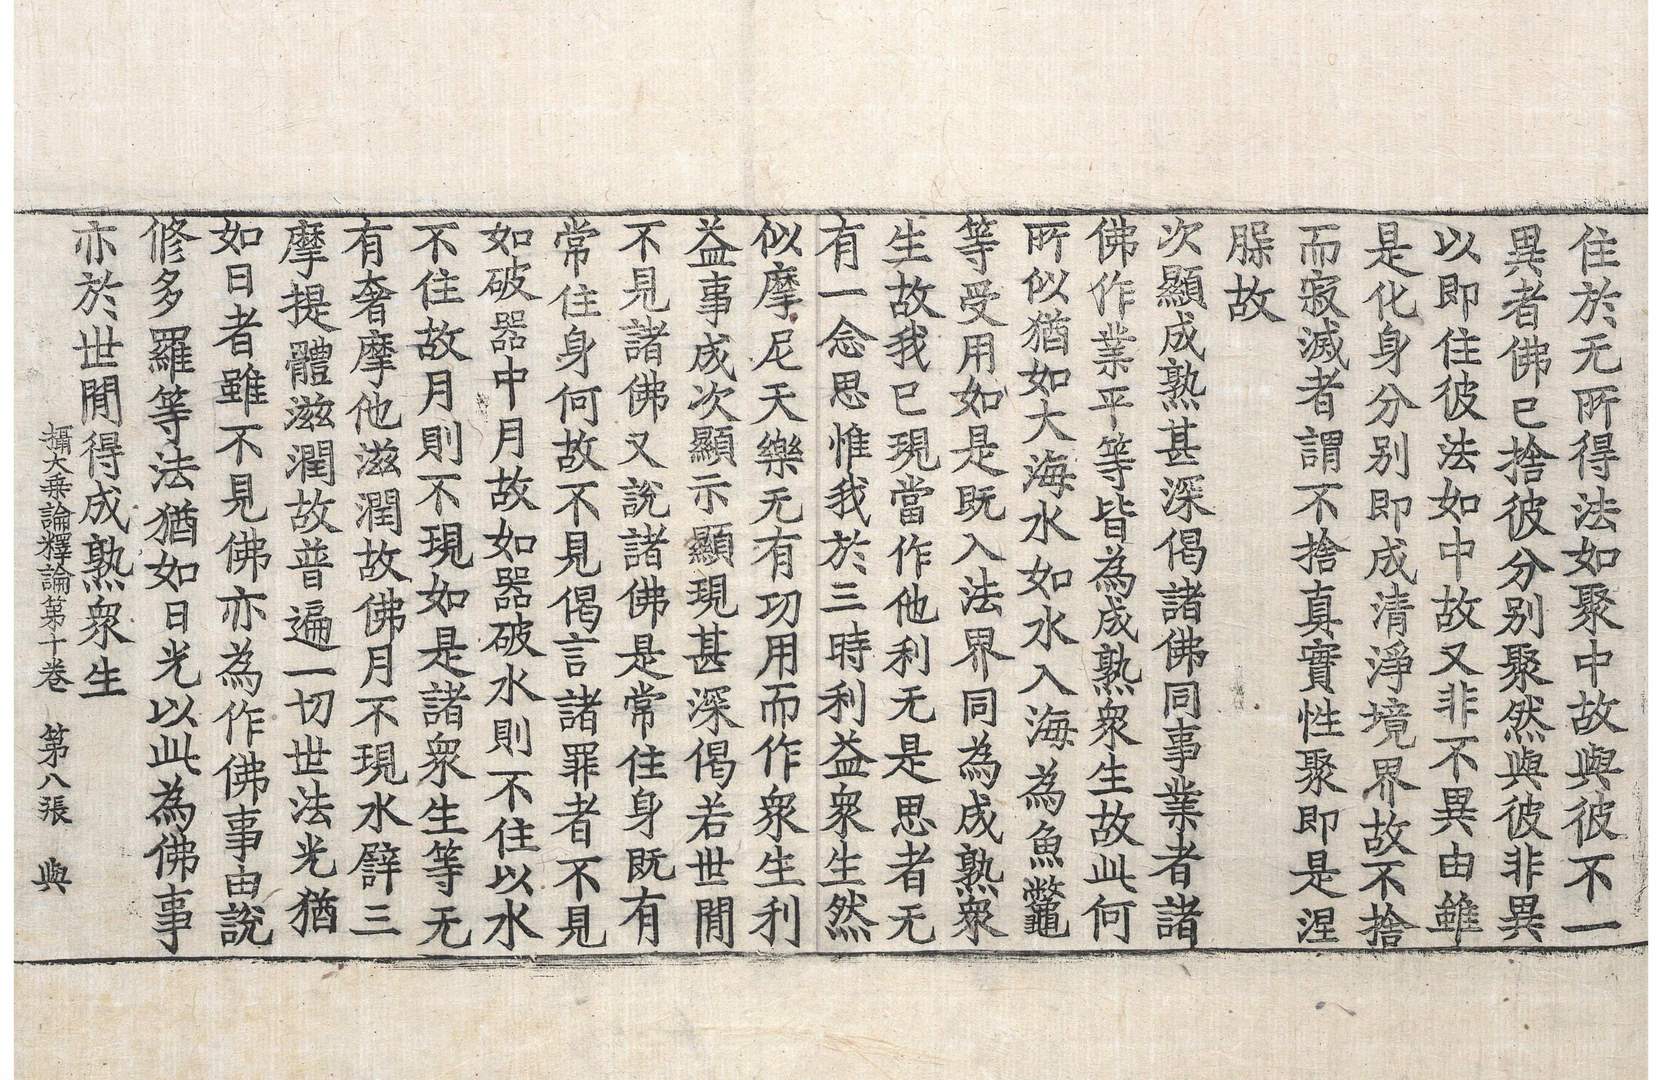 住於无所得法如聚中故與彼不一
異者佛已捨彼分別聚然與彼非異
以即住彼法如中故又非不異由雖
是化身分別即成清淨境界故不捨
而寂滅者謂不捨真實性聚即是涅
臊故
次顯成熟甚深偈諸佛同事業者諸
佛作業平等皆為成熟衆生故此何
所似猶如大海水如水入海為魚鼈
等受用如是既入法界同為成熟衆
生故我已現當作他利无是思者无
有一念思惟我於三時利益衆生然
似摩尼天樂无有功用而作衆生利
益事成次顯示顯現甚深偈若世閒
不見諸佛又說諸佛是常住身既有
常住身何故不見偈言諸罪者不見
如破器中月故如器破水則不住以水
不住故月則不現如是諸衆生等无
有奢摩他滋潤故佛月不現水譬三
摩提體滋潤故普遍一切世法光猶
如日者雖不見佛亦為作佛事由說
修多羅等法猶如日光以此為佛事
亦於世閒得成熟衆生
攝大乗論釋論第十卷　第八張　與